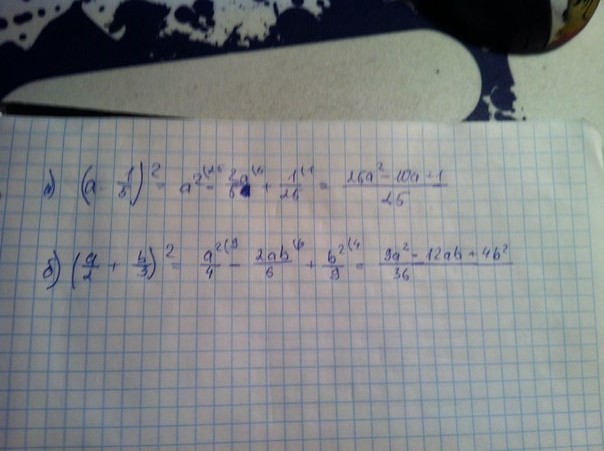 а) (a - 1/5)² = a²⁽²⁵ - 2a/5⁽⁵ + 1/25⁽¹ = (25a² - 10a + 1)/25
б) (a/2 + b/3)² = a²/4⁽⁹ - 2ab/6⁽⁶ + b²/9⁽⁴ = (9a² - 12ab + 4b²)/36